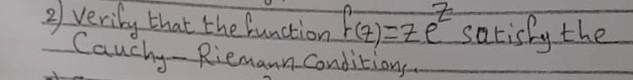 2) Verify that the function f(z)=ze^z satisfy the
Cauchy-Riemann Conditions.